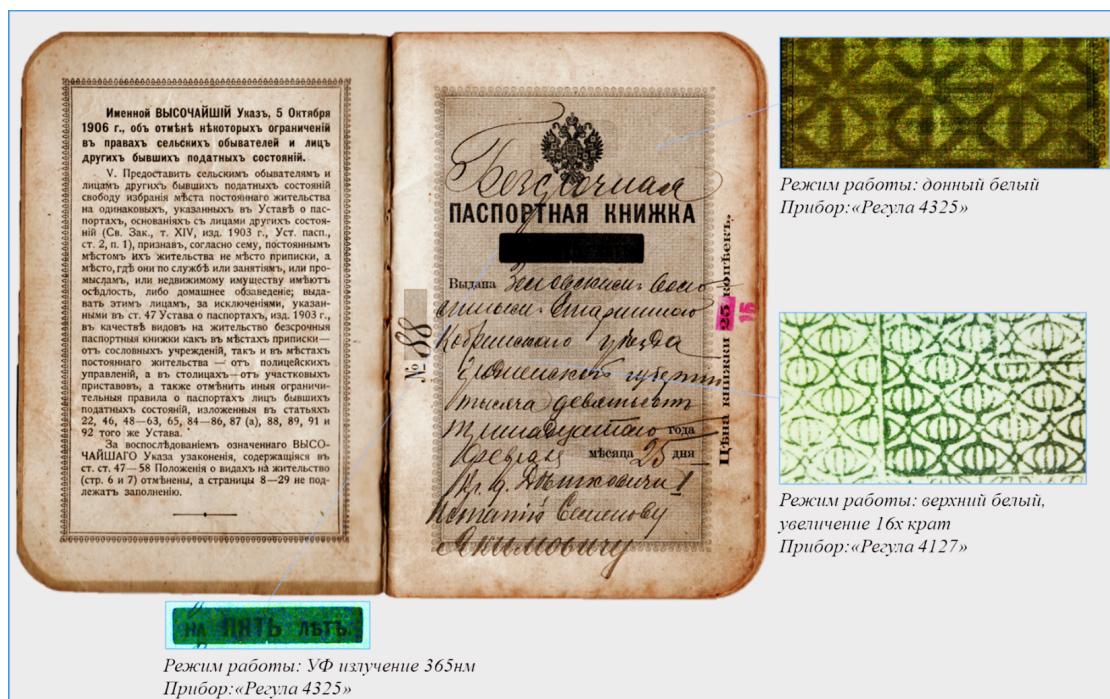 Именной ВЫСОЧАЙШІЙ Указъ, 5 Октября
1906 г., объ отмѣнѣ нѣкоторыхъ ограниченій
въ правахъ сельскихъ обывателей и лицъ
другихъ бывшихъ податныхъ состояній.
V. Предоставить сельскимъ обывателямъ и
лицамъ другихъ бывшихъ податныхъ состояній
свободу избранія мѣста постояннаго жительства
на одинаковыхъ, указанныхъ въ Уставѣ о пас-
портахъ, основаніяхъ съ лицами другихъ состоя-
ній (Св. Зак., т. XIV, изд. 1903 г., Уст. пасп.,
ст. 2, п. 1), признавъ, согласно сему, постояннымъ
мѣстомъ ихъ жительства не мѣсто приписки, а
мѣсто, гдѣ они по службѣ или занятіямъ, или про-
мысламъ, или недвижимому имуществу имѣютъ
осѣдлость, либо домашнее обзаведеніе; выда-
вать этимъ лицамъ, за исключеніями, указан-
ными въ ст. 47 Устава о паспортахъ, изд. 1903 г.,
въ качествѣ видовъ на жительство безсрочныя
паспортныя книжки какъ въ мѣстахъ приписки—
отъ сословныхъ учрежденій, такъ и въ мѣстахъ
постояннаго жительства — отъ полицейскихъ
управленій, а въ столицахъ—отъ участковыхъ
приставовъ, а также отмѣнить иныя ограничи-
тельныя правила о паспортахъ лицъ бывшихъ
податныхъ состояній, изложенныя въ статьяхъ
22, 46, 48—63, 65, 84—86, 87 (а), 88, 89, 91 и
92 того же Устава.
За воспослѣдованіемъ означеннаго ВЫСО-
ЧАЙШАГО Указа узаконенія, содержащіяся въ
ст. ст. 47—58 Положенія о видахъ на жительство
(стр. 6 и 7) отмѣнены, а страницы 8—29 не под-
лежатъ заполненію.
№ 88
Безсрочная
ПАСПОРТНАЯ КНИЖКА
Выдана
Кобринскаго уѣзда
Гродненской губерніи
тысяча девятьсот
тринадцатаго года
мѣсяца 25 дня
Семенову
Якимовичу
Цѣна книжки 25 копѣекъ.
15
Режим работы: донный белый
Прибор:«Регула 4325»
Режим работы: верхний белый,
увеличение 16х крат
Прибор:«Регула 4127»
НА ПЯТЬ ЛѢТЪ.
Режим работы: УФ излучение 365нм
Прибор:«Регула 4325»